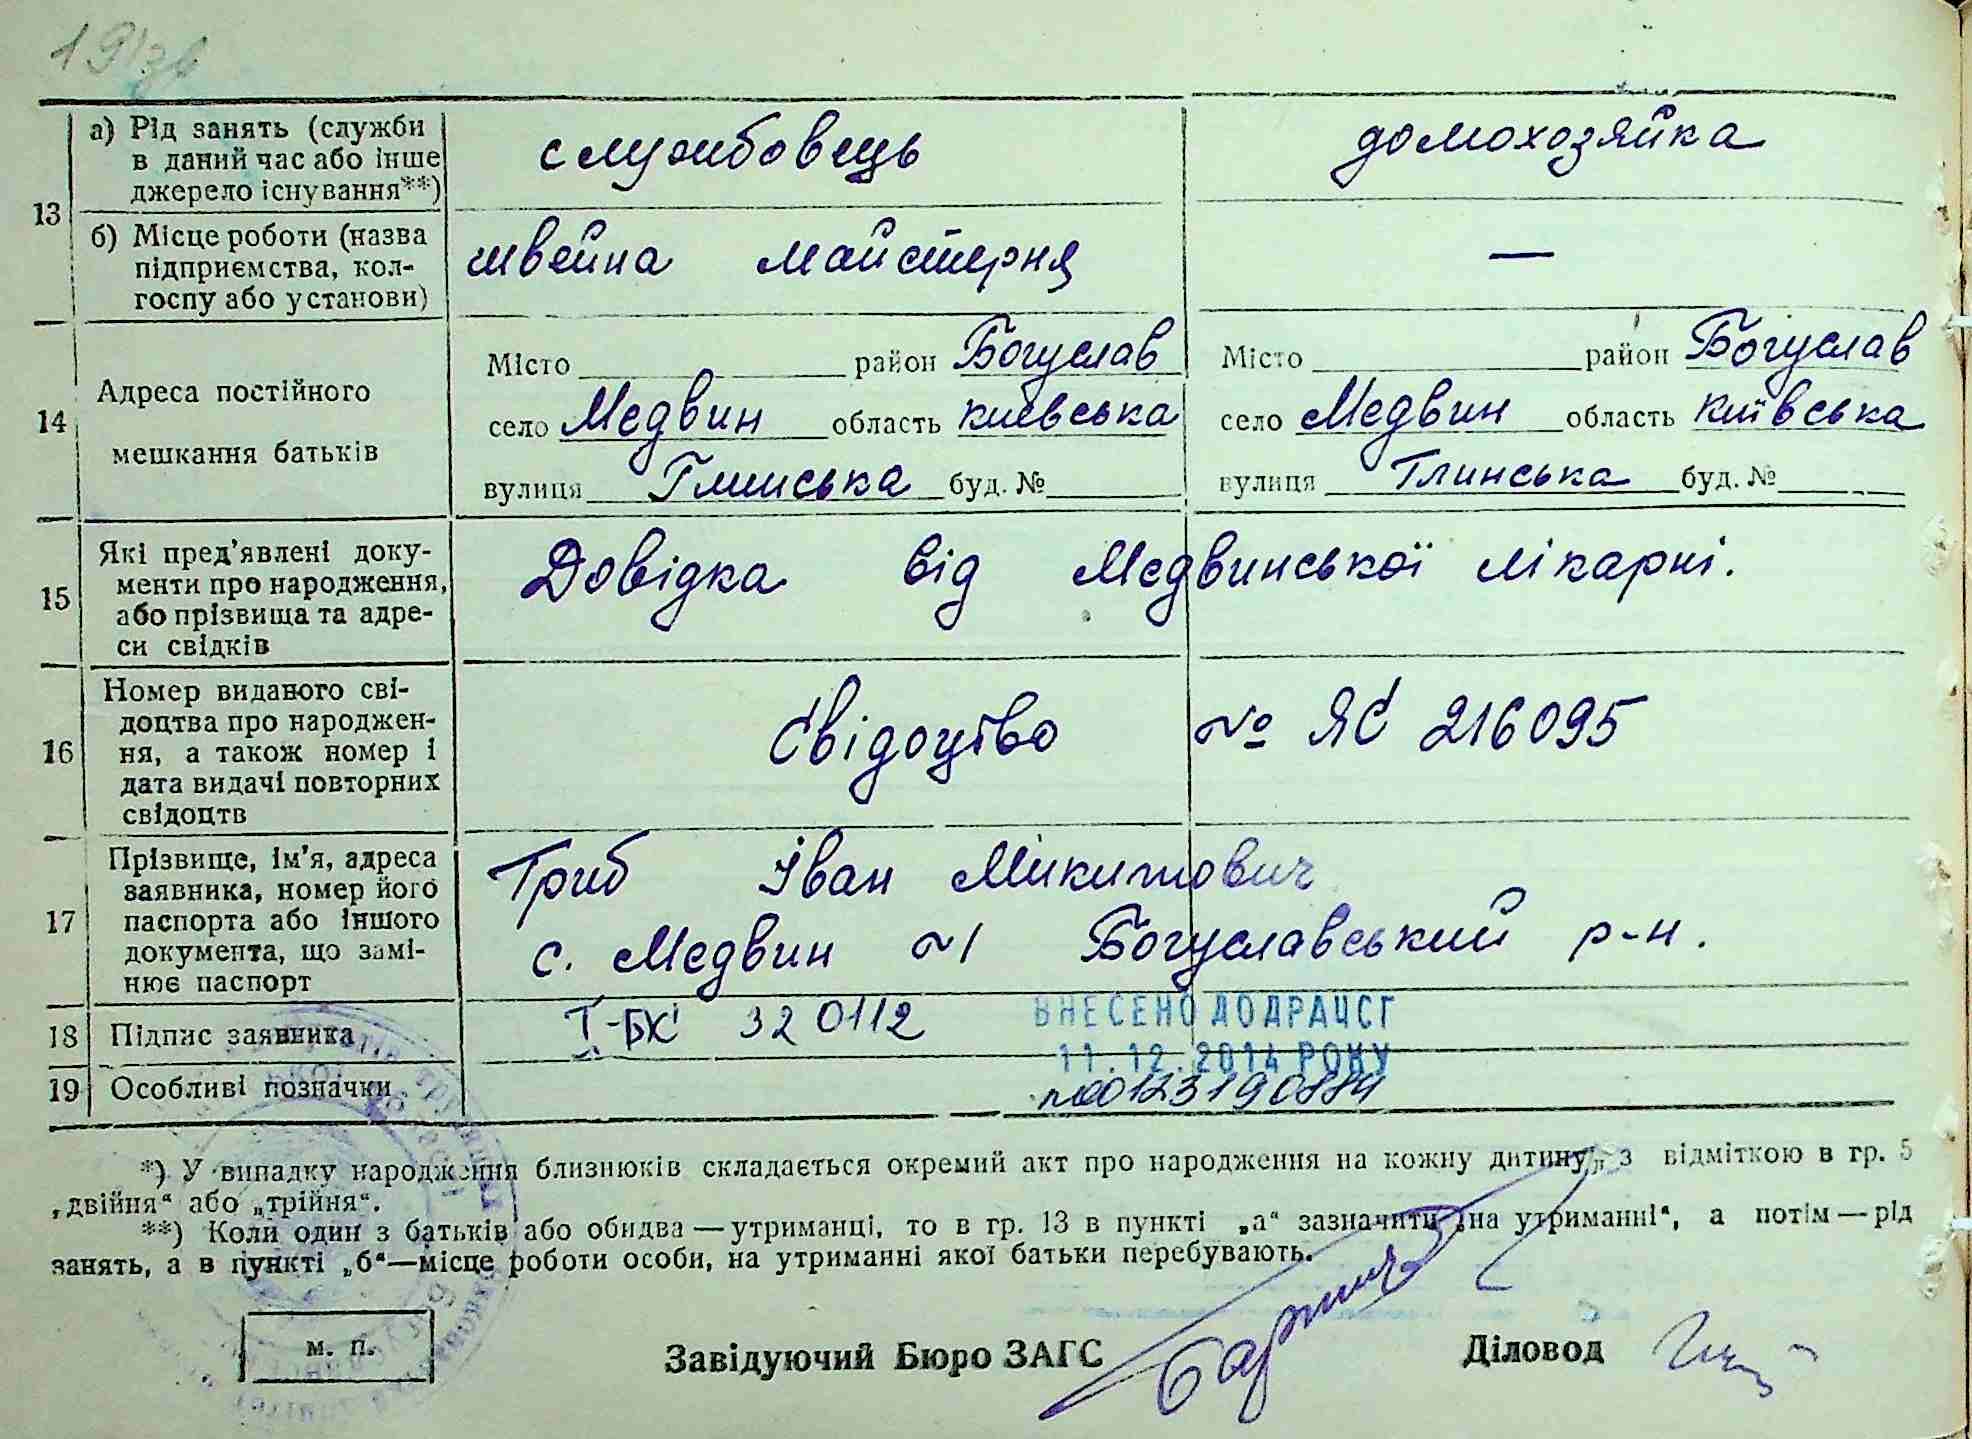 19зв
13
а) Рід занять (служби
в даний час або інше
джерело існування**)
службовець
домохозяйка
б) Місце роботи (назва
підприємства, кол-
госпу або установи)
швейна майстерня
—
14
Адреса постійного
мешкання батьків
Місто район Богуслав
село Медвин область Київська
вулиця Глинська буд. №
Місто район Богуслав
село Медвин область Київська
вулиця Глинська буд. №
15
Які пред'явлені доку-
менти про народження,
або прізвища та адре-
си свідків
Довідка від Медвинської лікарні.
16
Номер виданого сві-
доцтва про народжен-
ня, а також номер і
дата видачі повторних
свідоцтв
Свідоцтво № ЯС 216095
17
Прізвище, ім'я, адреса
заявника, номер його
паспорта або іншого
документа, що замі-
нює паспорт
Гриб Іван Микитович
с. Медвин №1 Богуславський р-н.
18 Підпис заявника
І-БК 320112
ВНЕСЕНО ДО ДРАЦСГ
11.12.2014 РОКУ
19 Особливі позначки
№00123190884
*) У випадку народження близнюків складається окремий акт про народження на кожну дитину з відміткою в гр. 5
„двійня" або „трійня".
**) Коли один з батьків або обидва — утриманці, то в гр. 13 в пункті „а" зазначити „на утриманні", а потім — рід
занять, а в пункті „б"—місце роботи особи, на утриманні якої батьки перебувають.
м. п.
Завідуючий Бюро ЗАГС
Діловод